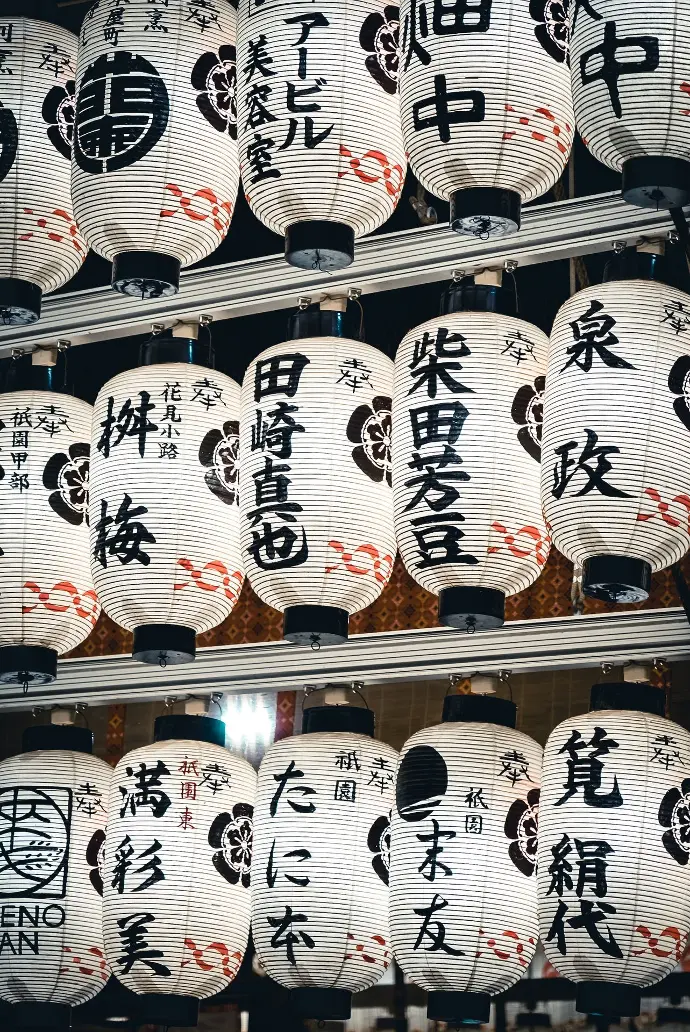 奉
奉
割烹
屋町
アービル
美容室
畑中
中
奉
祇園甲部
奉
花見小路
桝梅
奉
田崎真也
奉
柴田芳豆
奉
泉政
奉
ENO
AN
奉
祇園東
満彩美
奉
祇園
たに本
奉
祇園
末友
奉
筧絹代